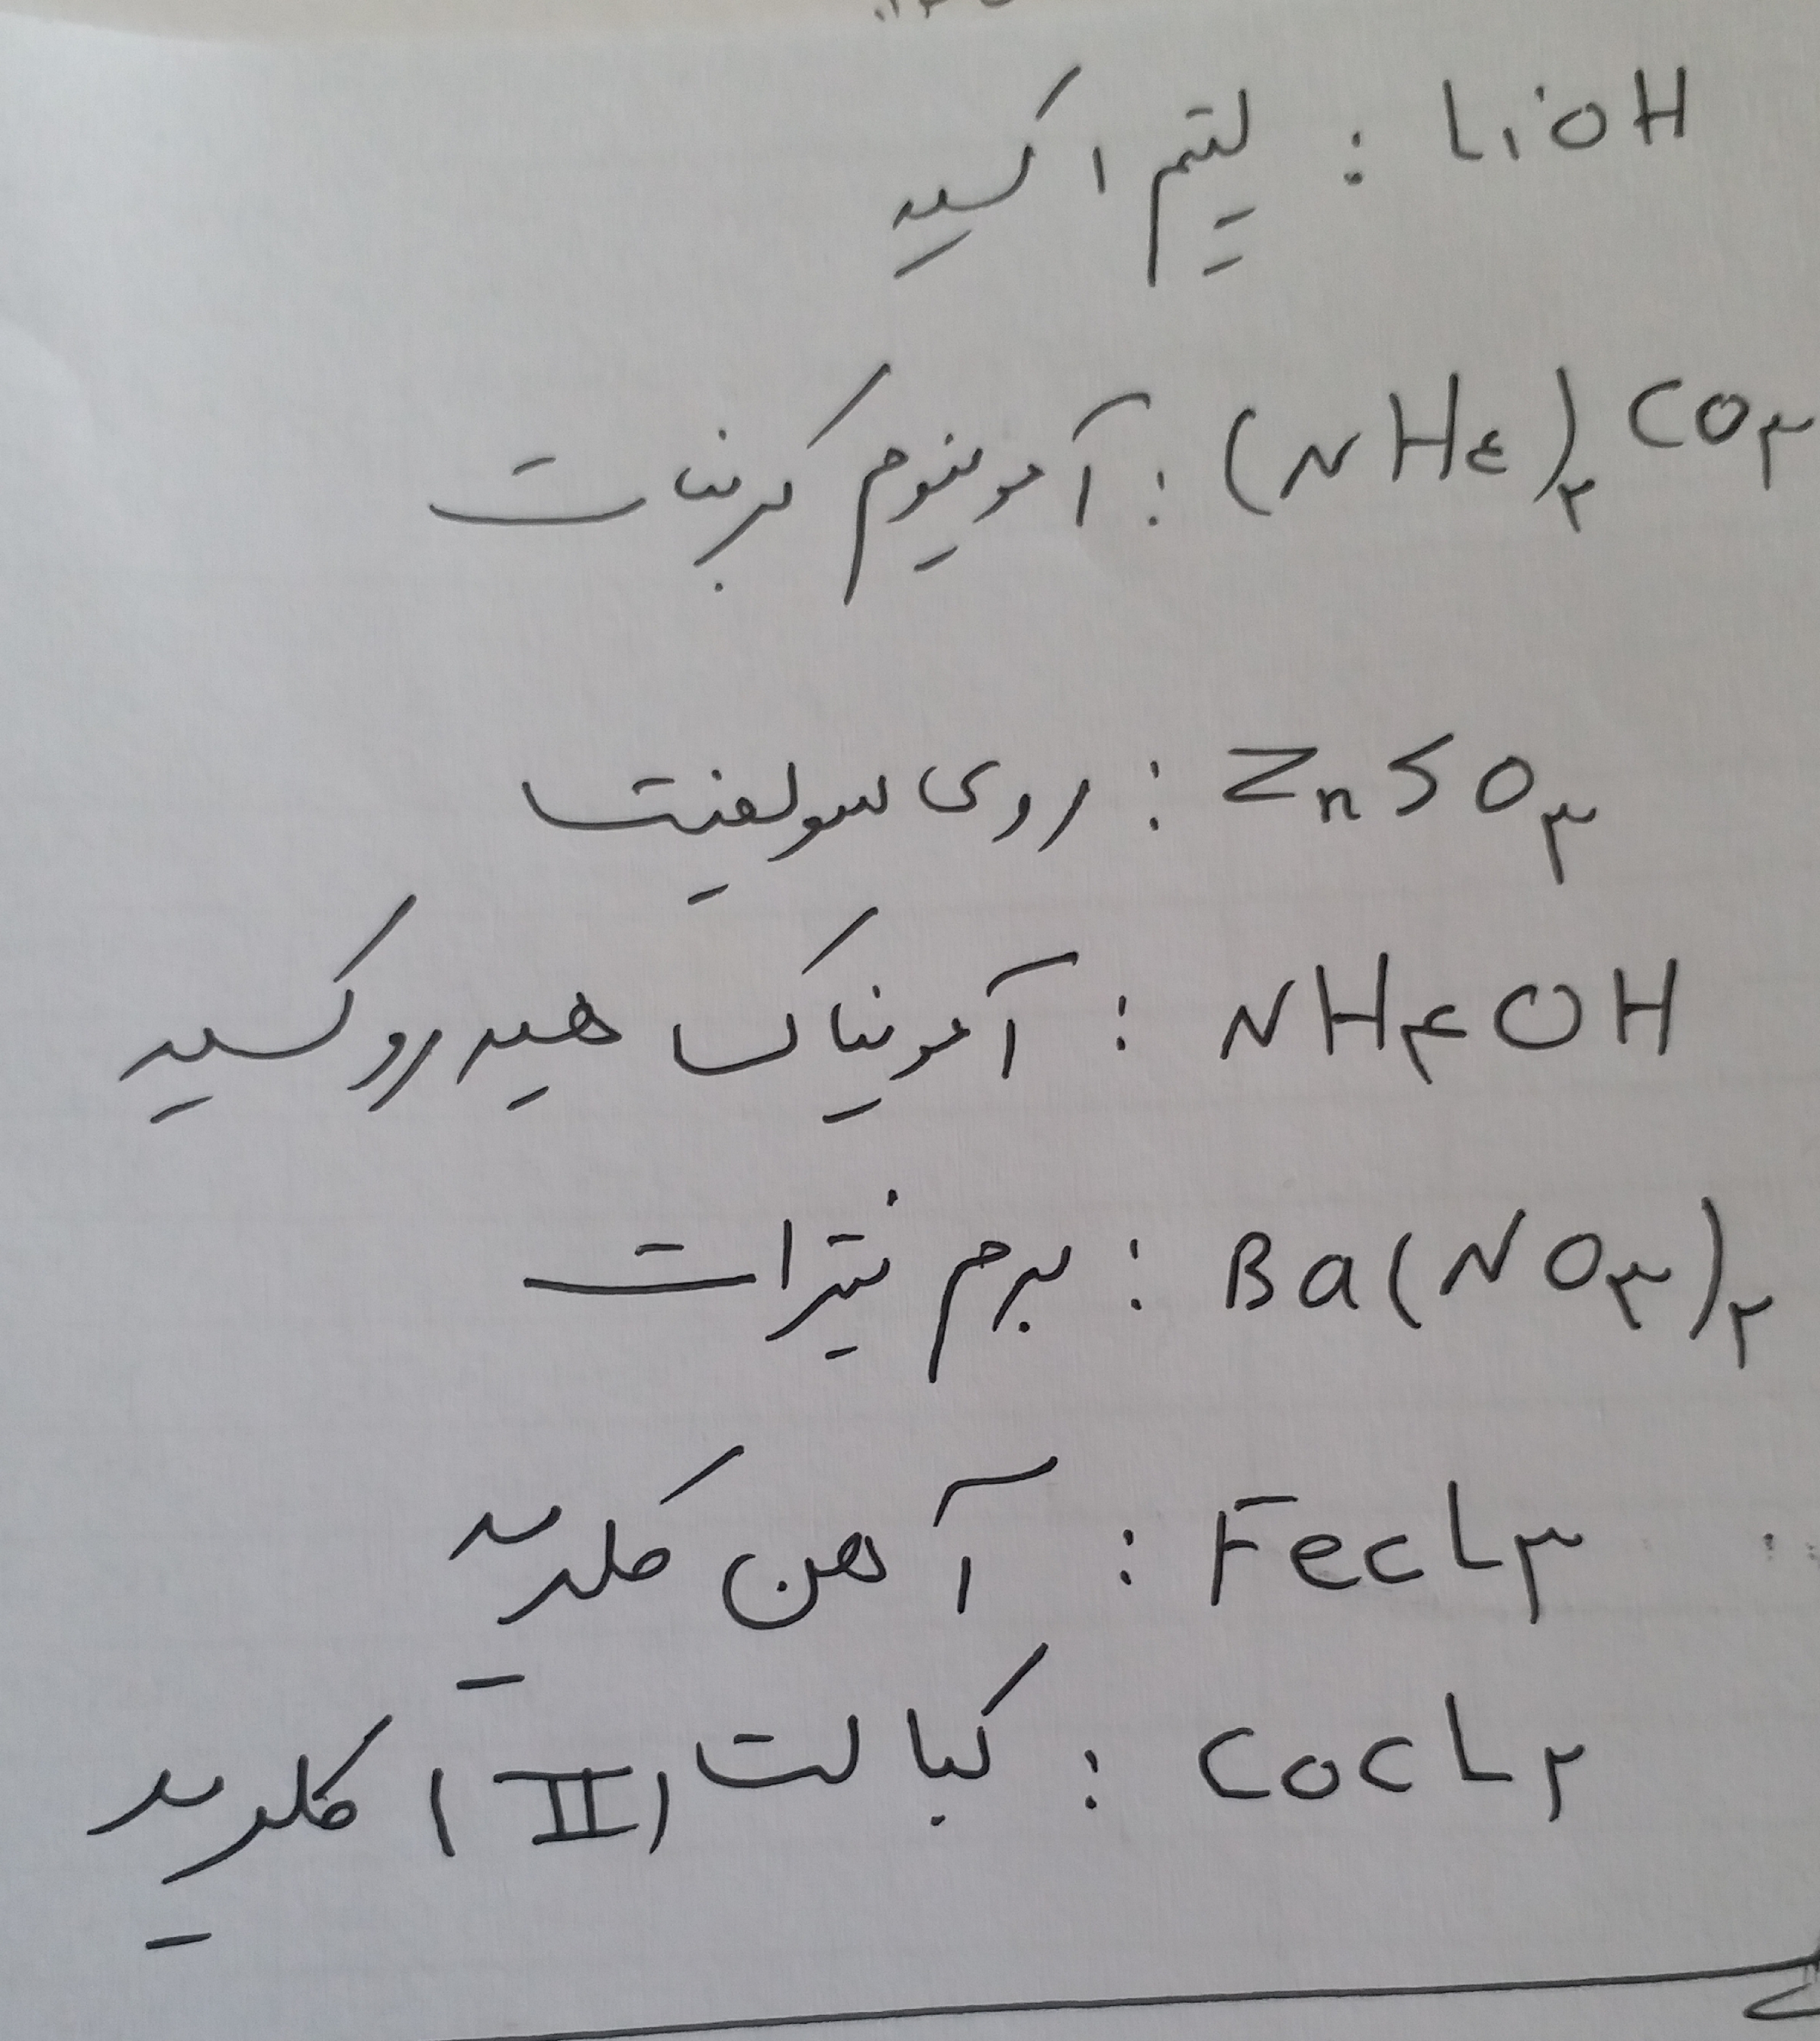 LiOH : لیتیم اکسید
(NH٤)۲ CO۳ : آمونیوم کربنات
ZnSO۳ : روی سولفیت
NH۴OH : آمونیاک هیدروکسید
Ba(NO۳)۲ : برم نیترات
FeCL۳ : آهن کلرید
COCL۲ : کبالت (II) کلرید